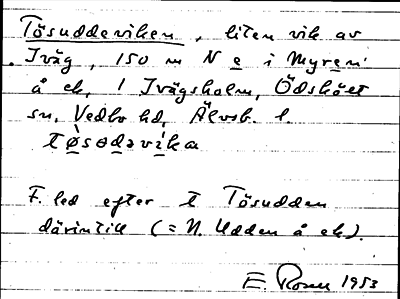 Tösuddeviken, liten vik av
Iväg, 150 m N e i Myren
å ek, I Ivägsholm, Ödskölt
sn, Vedbo hd, Älvsb. l.
tøsodəvika
F. led efter t Tösudden
därintill (= N. Udden å ek).
E. Rosell 1953